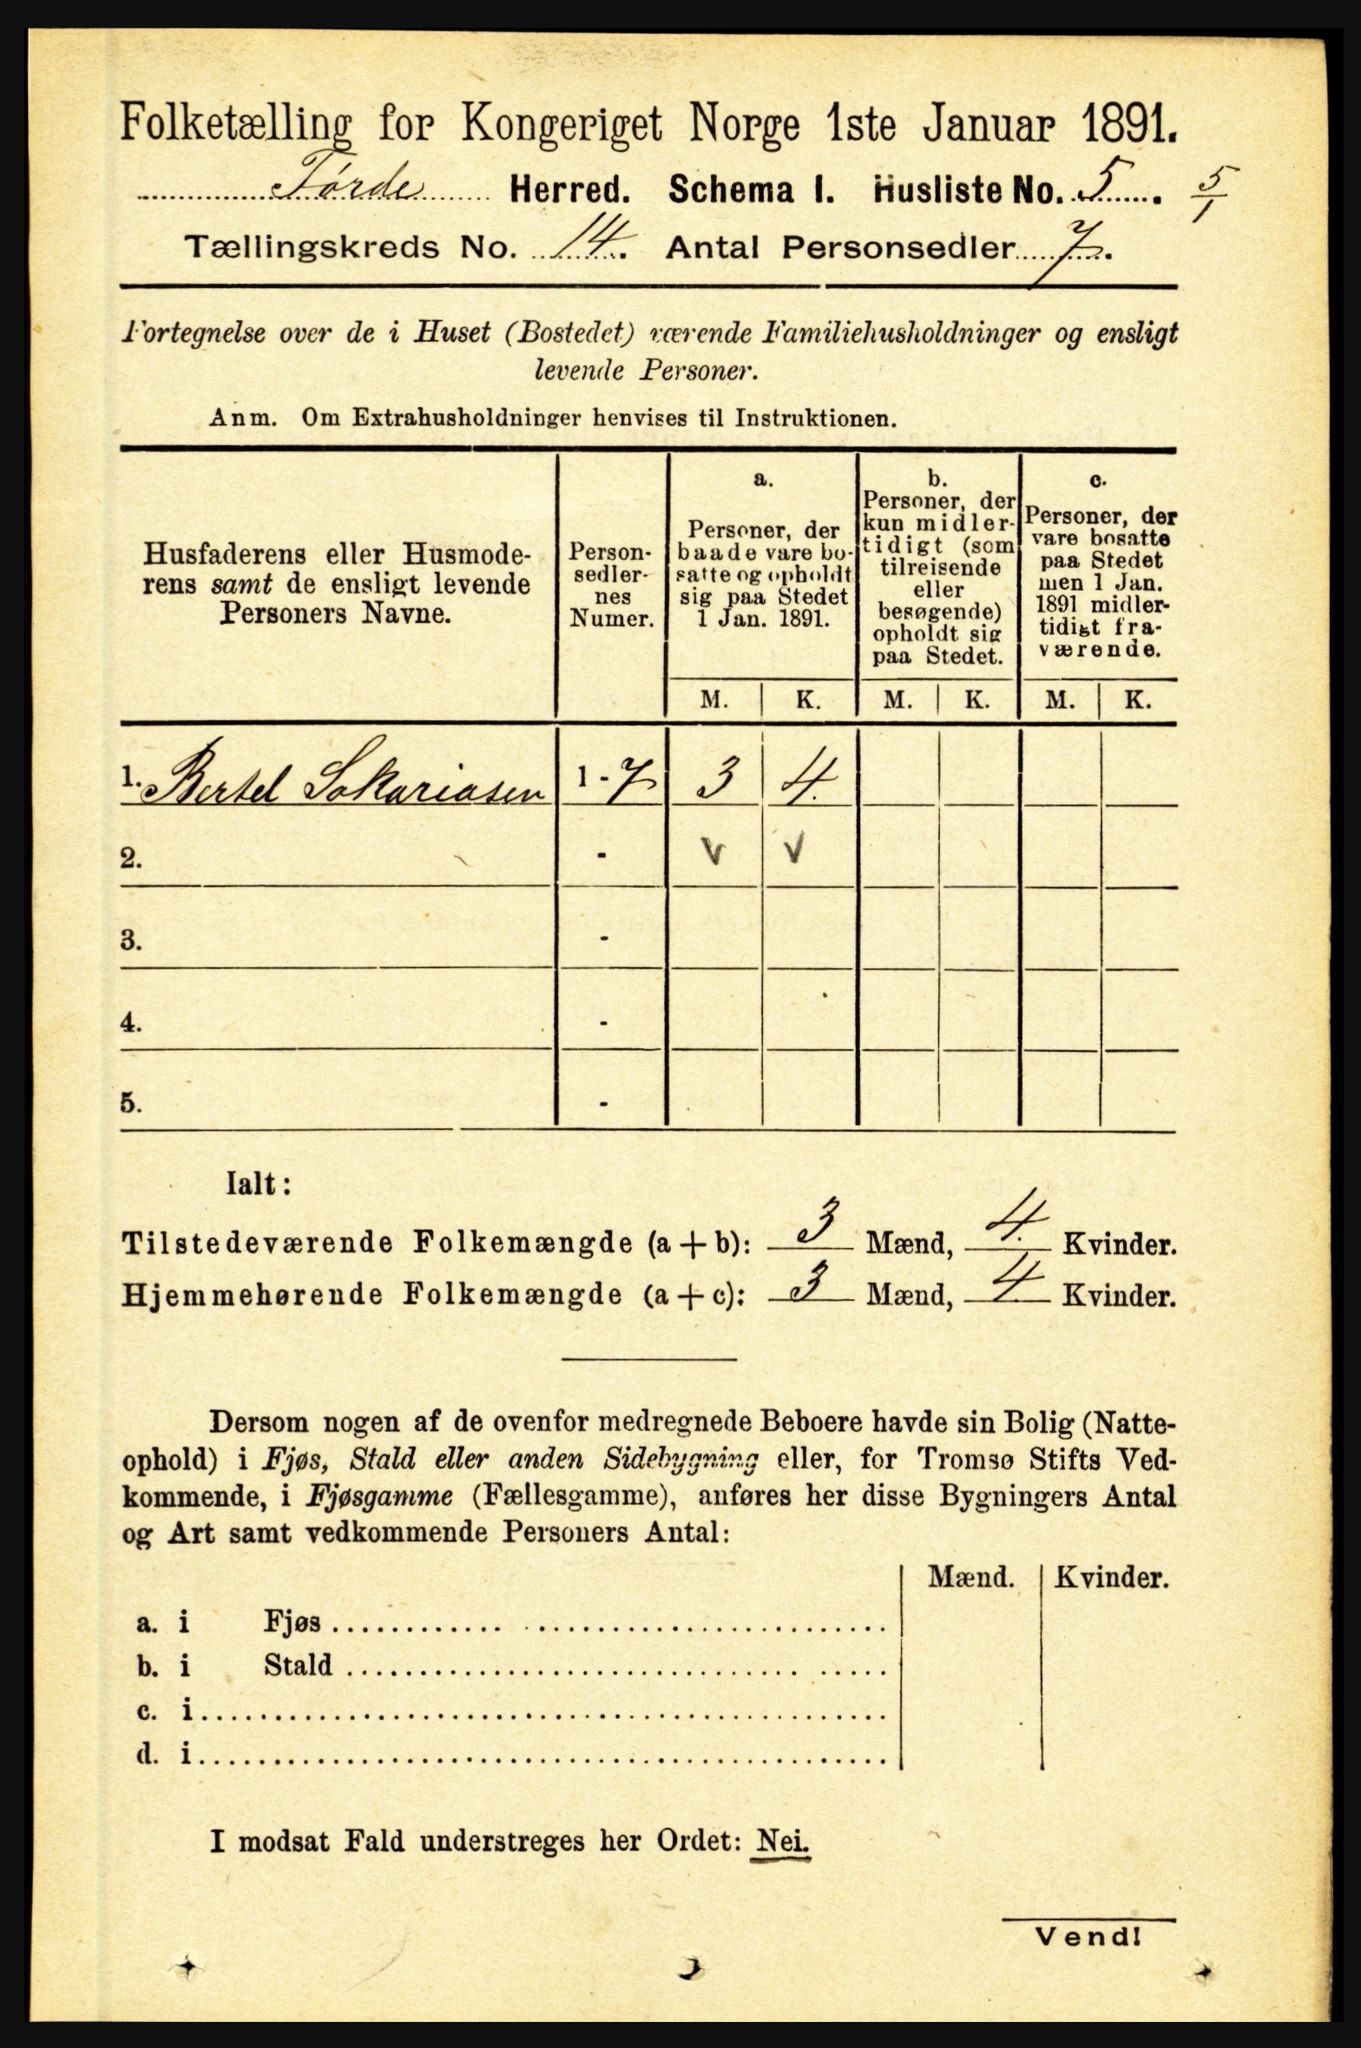 Folketælling for Kongeriget Norge 1ste Januar 1891.
Førde Herred. Schema I. Husliste No. 5. 5/1
Tællingskreds No. 14. Antal Personsedler 7.
Fortegnelse over de i Huset (Bostedet) værende Familiehusholdninger og ensligt
levende Personer.
Anm. Om Extrahusholdninger henvises til Instruktionen.
Husfaderens eller Husmode-
rens samt de ensligt levende
Personers Navne.
Person-
sedler-
nes
Numer.
a.
Personer, der
baade vare bo-
satte og opholdt
sig paa Stedet
1 Jan. 1891.
b.
Personer, der
kun midler-
tidigt (som
tilreisende
eller
besøgende)
opholdt sig
paa Stedet.
c.
Personer, der
vare bosatte
paa Stedet
men 1 Jan.
1891 midler-
tidigt fra-
værende.
M. K. M. K. M. K.
1. Bertel Sakariasen 1 - 7 3 4.
2. - v v
3. -
4. -
5. -
Ialt:
Tilstedeværende Folkemængde (a + b): 3 Mænd, 4. Kvinder.
Hjemmehørende Folkemængde (a + c): 3 Mænd, 4 Kvinder.
Dersom nogen af de ovenfor medregnede Beboere havde sin Bolig (Natte-
ophold) i Fjøs, Stald eller anden Sidebygning eller, for Tromsø Stifts Ved-
kommende, i Fjøsgamme (Fællesgamme), anføres her disse Bygningers Antal
og Art samt vedkommende Personers Antal:
Mænd. Kvinder.
a. i Fjøs
b. i Stald
c. i
d. i
I modsat Fald understreges her Ordet: Nei.
Vend!